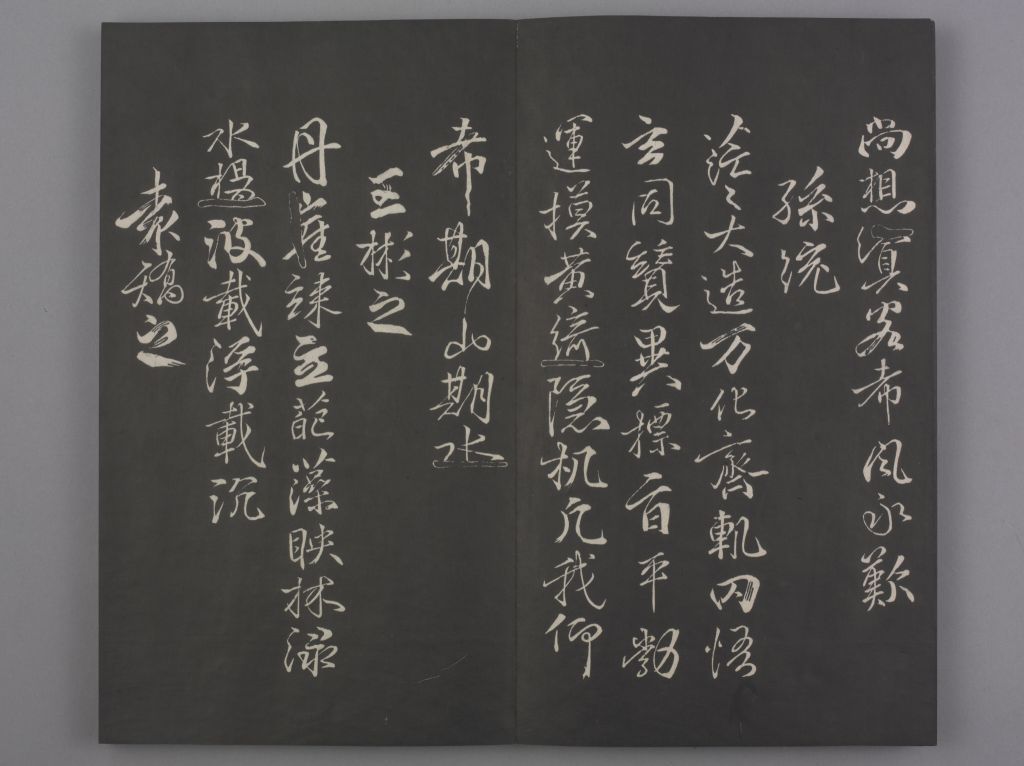 尚想冥客希風永歎
孫統
茫〻大造万化齊軌罔悟
玄同競異標旨平勃
運摸黃綺隱机凡我仰
希期山期水
王彬之
丹崖竦立葩藻映林淥
水揚波載浮載沉
袁矯之